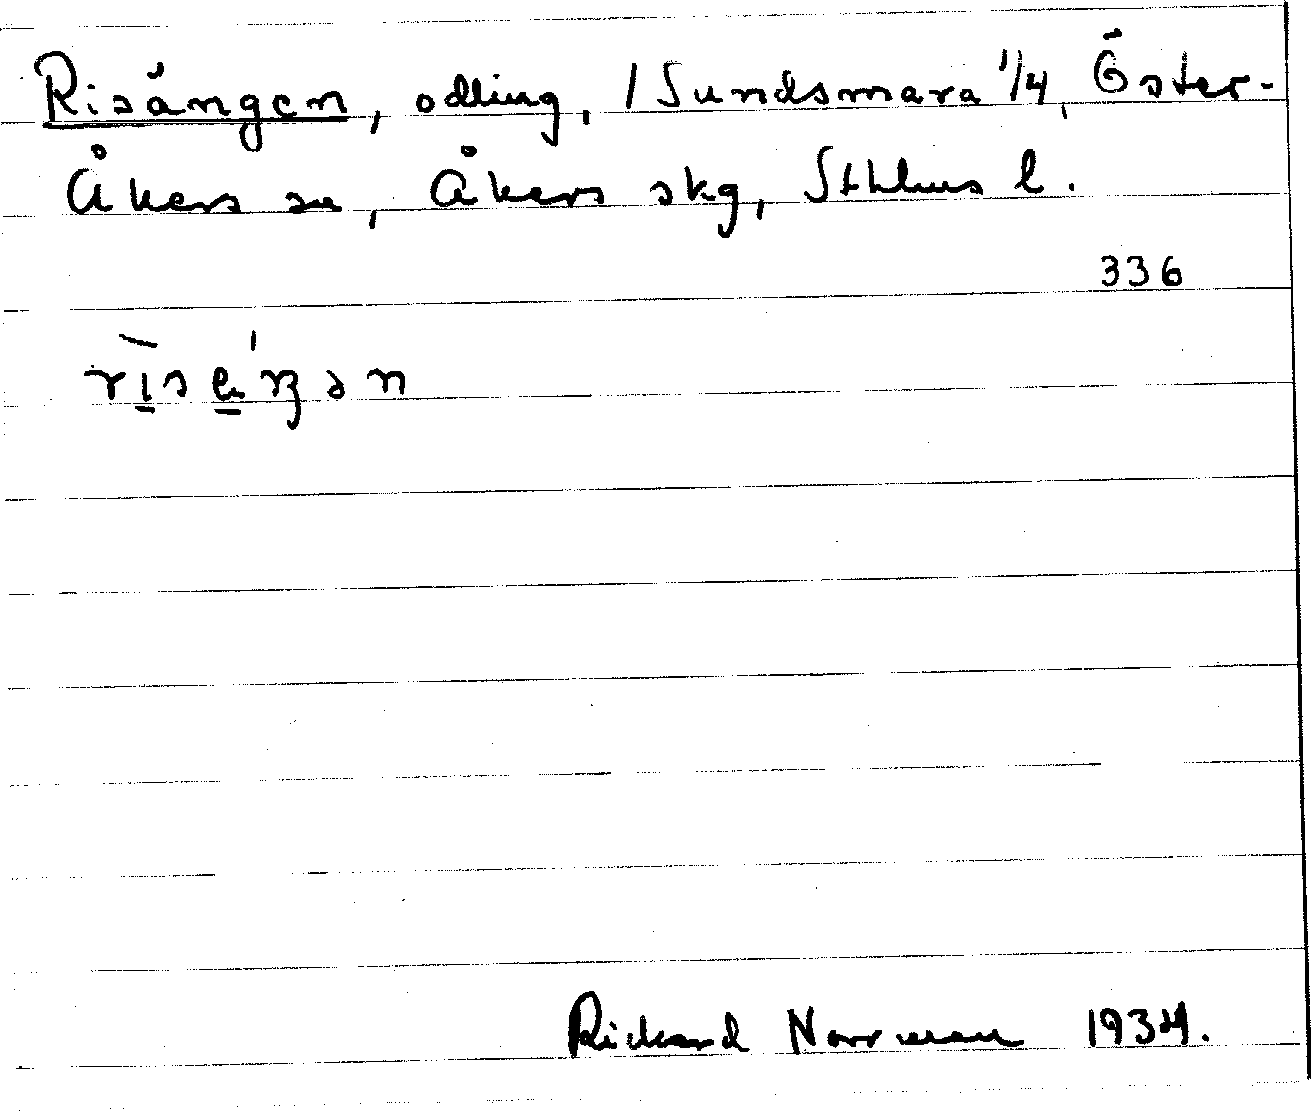 Risängen, odling, / Sundsmara 1/4, Öster-
Åkers sn, Åkers skg, Sthlms l.
336
rìsǽŋən
Rickard Norrman 1934.